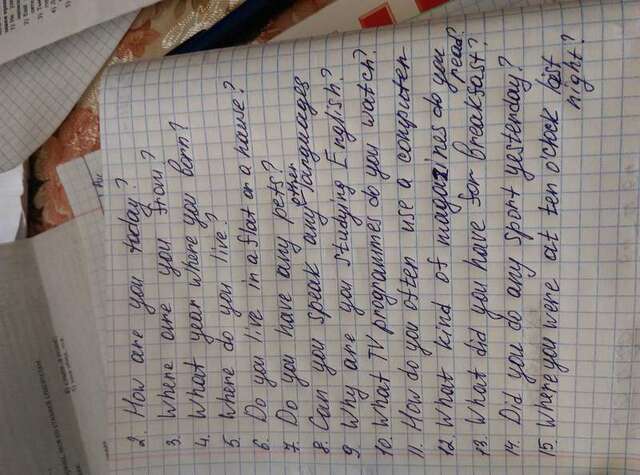 2. How are you today?
3. Where are you from?
4. What year where you born?
5. Where do you live?
6. Do you live in a flat or a hause?
7. Do you have any pets?
8. Can you speak any other languages
9. Why are you studying English?
10. What TV programmes do you watch?
11. How do you often use a computer
12. What kind of magazines do you
read?
13. What did you have for breakfast?
14. Did you do any sport yesterday?
15 Where you were at ten o'clock last
night?